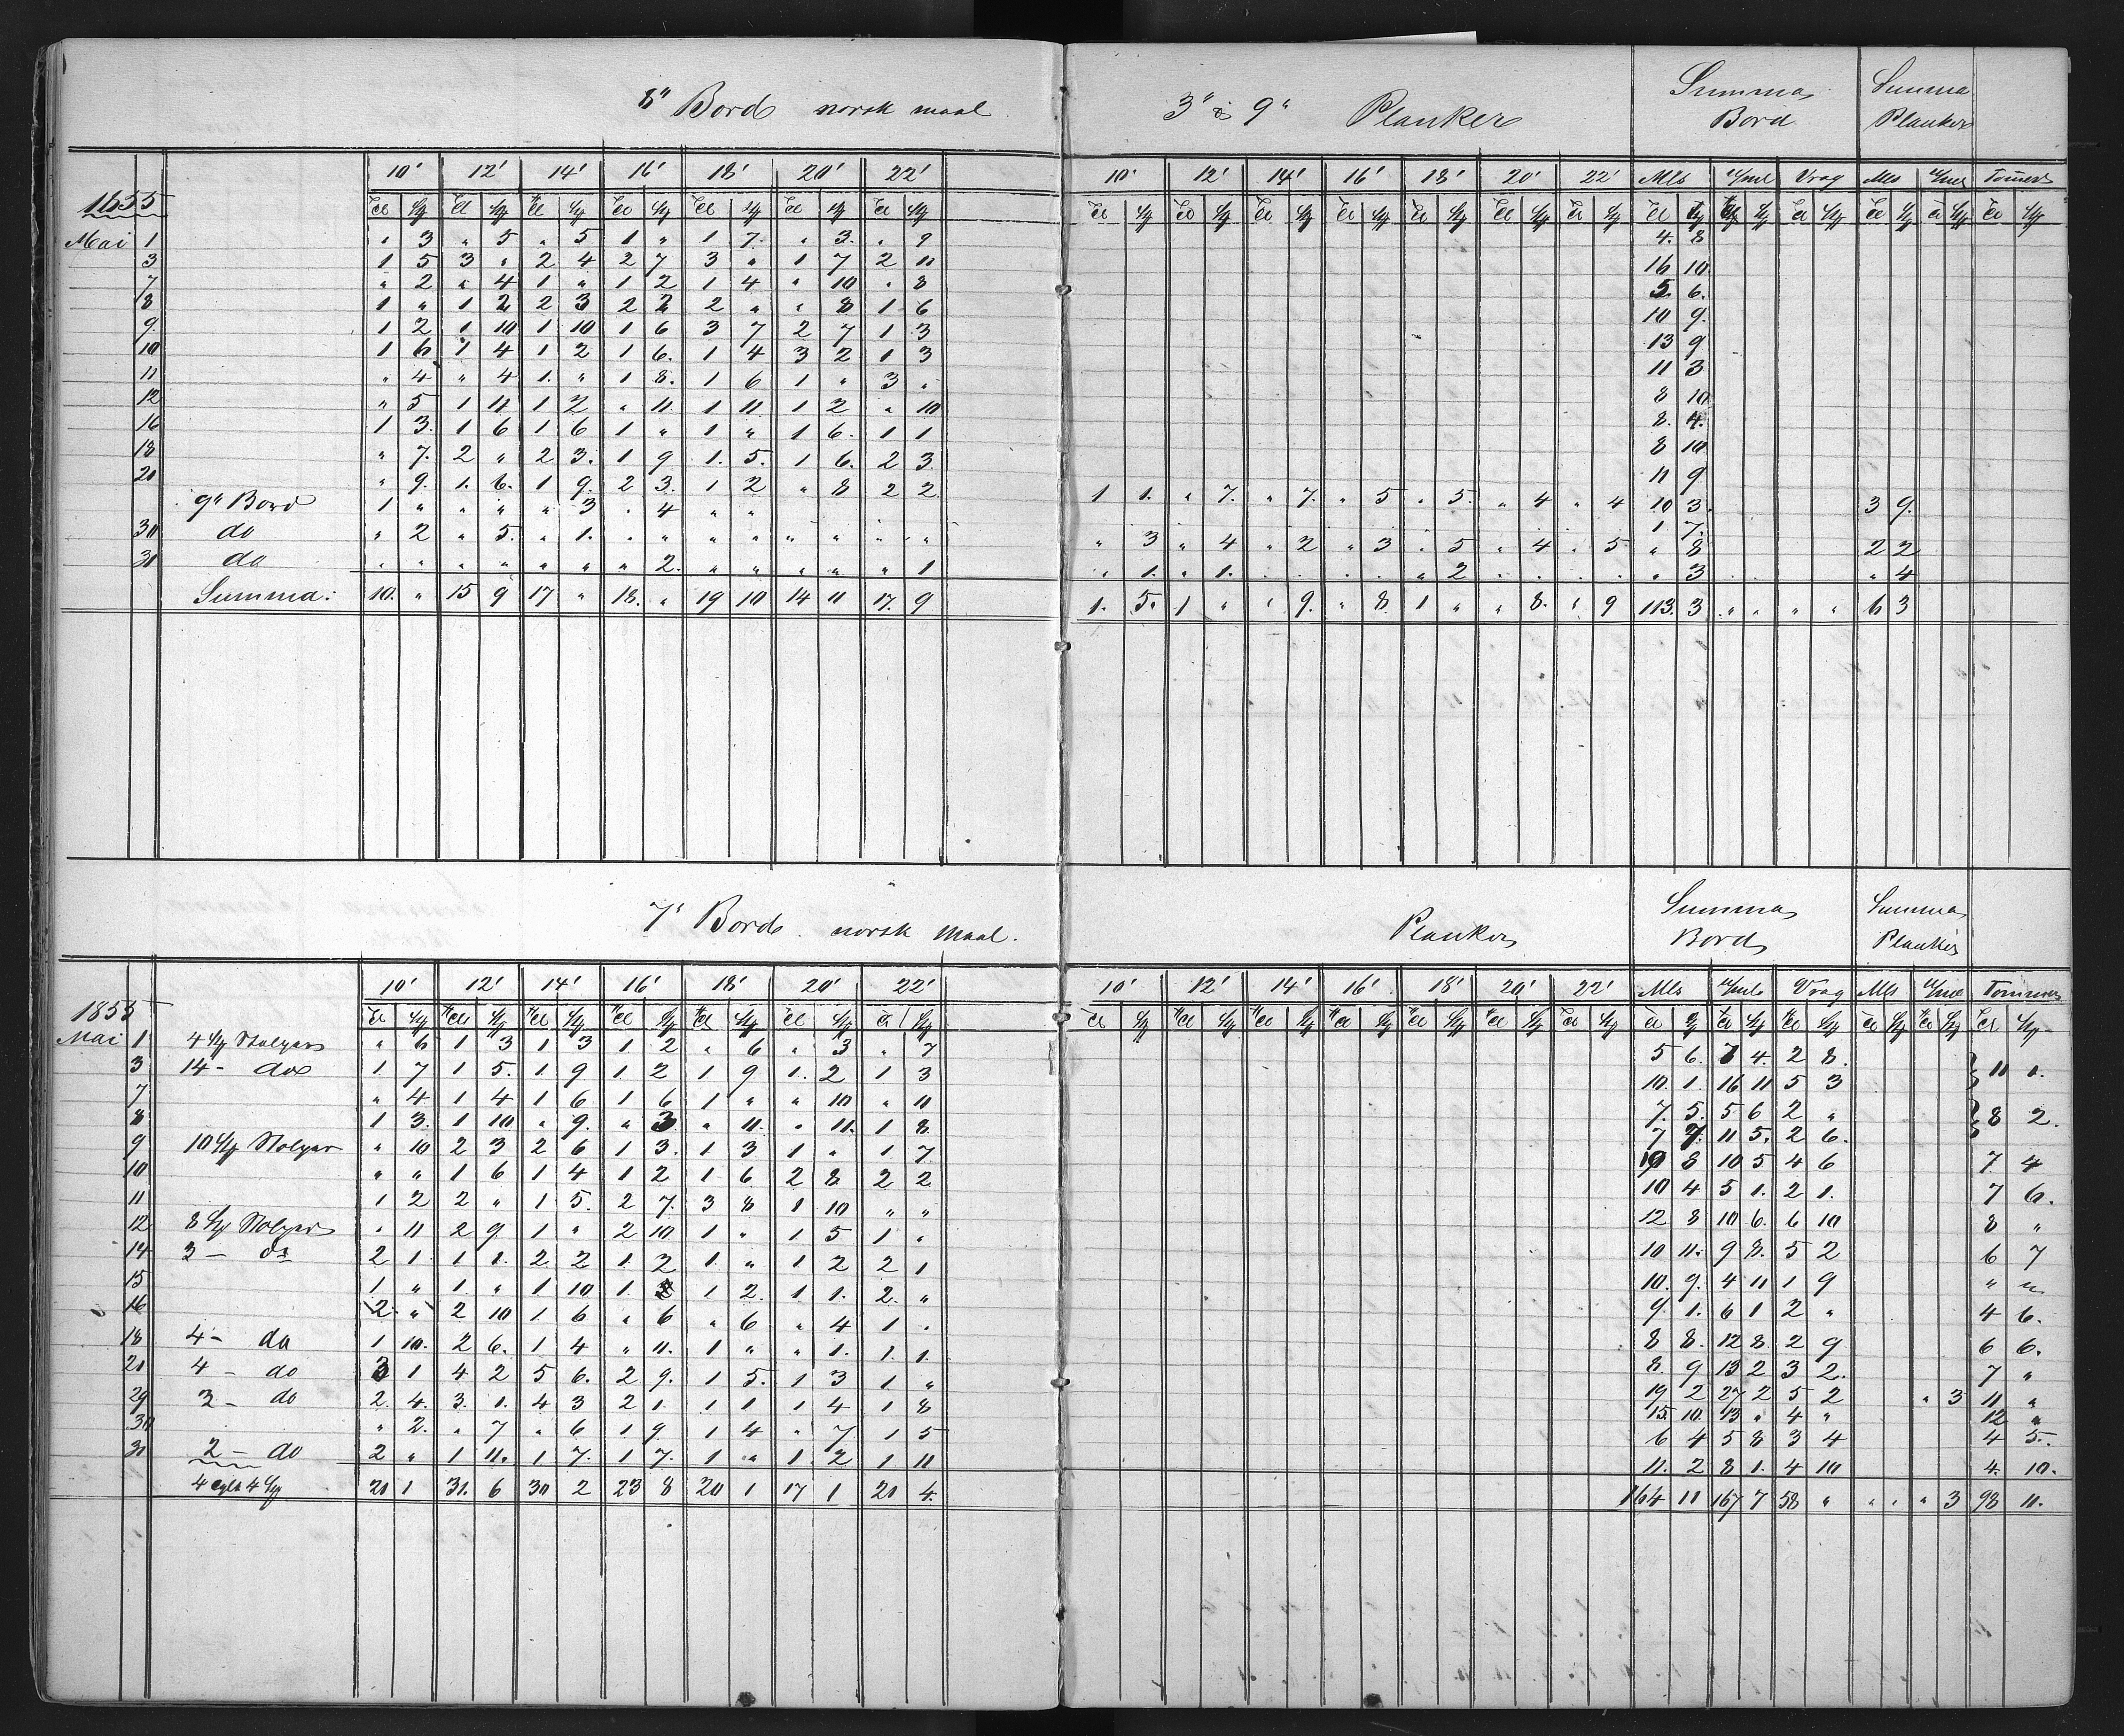 8" Bord norsk maal
3" & 9" Planker Summa Bord Summa Planker
10' 12' 14' 16' 18' 20' 22' 10' 12' 14' 16' 18' 20' 22' Mls Vrag Mls Tømmer
1855
Mai 1 " 3 " 5 " 5 1 " 1 7 " 3 " 9 4 8
3 1 5 3 " 2 4 2 7 3 " 1 7 2 11 16 10
7 " 2 " 4 1 " 1 2 1 4 " 10 " 8 5 6
8 1 " 1 2 2 3 2 2 2 " " 8 1 6 10 9
9 1 2 1 10 1 10 1 6 3 7 2 7 1 3 13 9
10 1 6 1 4 1 2 1 6 1 4 3 2 1 3 11 3
11 " 4 " 4 1 " 1 8 1 6 1 " 3 " 8 10
12 " 5 1 11 1 2 " 11 1 11 1 2 " 10 8 4
16 1 3 1 6 1 6 1 " 1 " 1 6 1 1 8 10
18 " 7 2 " 2 3 1 9 1 5 1 6 2 3 11 9
20 " 9 1 6 1 9 2 3 1 2 " 8 2 2 1 1 " 7 " 7 " 5 " 5 " 4 " 4 10 3 3 9
9" Bord 1 " " " " 3 " 4 " " 1 7
30 do " 2 " 5 " 1 " " " " " " " " " 3 " 4 " 2 " 3 " 5 " 4 " 5 " 8 2 2
31 do " " " " " " " 2 " " " " " 1 " 1 " 1 " " " " " 2 " " " " " 3 " 4
Summa: 10 " 15 9 17 " 18 " 19 10 14 11 17 9 1 5 1 " " 9 " 8 1 " " 8 " 9 113 3 " " " " 6 3
7" Bord norsk maal.
Planker Summa Bord Summa Planker
10' 12' 14' 16' 18' 20' 22' 10' 12' 14' 16' 18' 20' 22' Mls Vrag Mls Tømmer
1855
Mai 1 " 6 1 3 1 3 1 2 " 6 " 3 " 7 5 6 7 4 2 8
3 14 - 1 7 1 5 1 9 1 2 1 9 1 2 1 3 10 1 16 11 5 3 11 1
7 " 4 1 4 1 6 1 6 1 " " 10 " 11 7 5 5 6 2 "
8 1 3 1 10 " 9 " 3 " 11 " 11 1 8 7 7 11 5 2 6 8 2
9 " 10 2 3 2 6 1 3 1 3 1 " 1 7 10 8 10 5 4 6 7 4
10 " " 1 6 1 4 1 2 1 6 2 8 2 2 10 4 5 1 2 1 7 6
11 1 2 2 " 1 5 2 7 3 8 1 10 " " 12 8 10 6 6 10 8 "
12 " 11 2 9 1 " 2 10 1 " 1 5 1 " 10 11 9 8 5 2 6 7
14 3 - do 2 1 1 1 2 2 1 2 1 " 1 2 2 1 10 9 4 11 1 9 " "
15 1 " 1 " 1 10 1 1 2 1 1 2 " 9 1 6 1 2 " 4 6
16 2 " 2 10 1 6 " 6 " 6 " 4 1 " 8 8 12 8 2 9 6 6
18 4 - do 1 10 2 6 1 4 " 11 1 " " 1 1 1 8 9 13 2 3 2 7 "
21 4 - do 3 1 4 2 5 6 2 9 1 5 1 3 1 " 19 2 27 2 5 2 " 3 11 "
29 3 - do 2 4 3 1 4 3 2 1 1 1 1 4 1 8 15 10 13 " 4 " 12 "
30 " 2 " 7 " 6 1 9 1 4 " 7 1 5 6 4 5 8 3 4 4 5
31 2 - do 2 " 1 11 1 7 1 7 1 " 1 2 1 11 11 2 8 1 4 10 4 10
21 1 31 6 30 2 23 8 20 1 17 1 21 4 164 11 167 7 58 " " " " 3 98 11